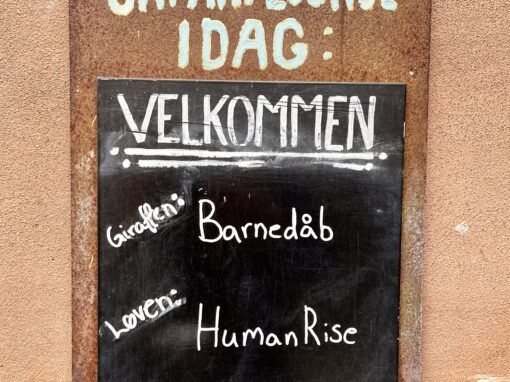 IDAG:
VELKOMMEN
Giraffen: Barnedåb
Løven: HumanRise